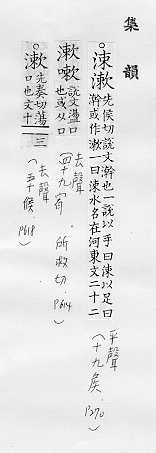 集韻
涑漱 先侯切說文澣也一說以手曰涑以足曰
澣或作漱一曰涑水名在河東文二十二
(平聲
十九侯.
P270)
漱嗽 說文盪口
也或从口
(去聲
四十九宥.
所救切.
P614)
漱 先奏切蕩
口也文十三
(去聲
五十候.
P618)